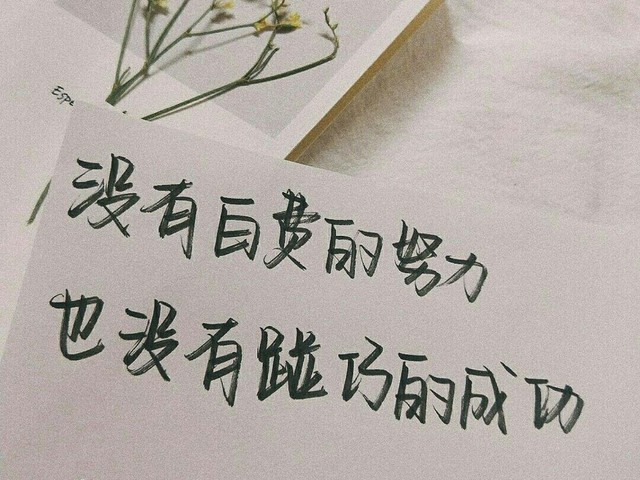 没有白费的努力
也没有碰巧的成功